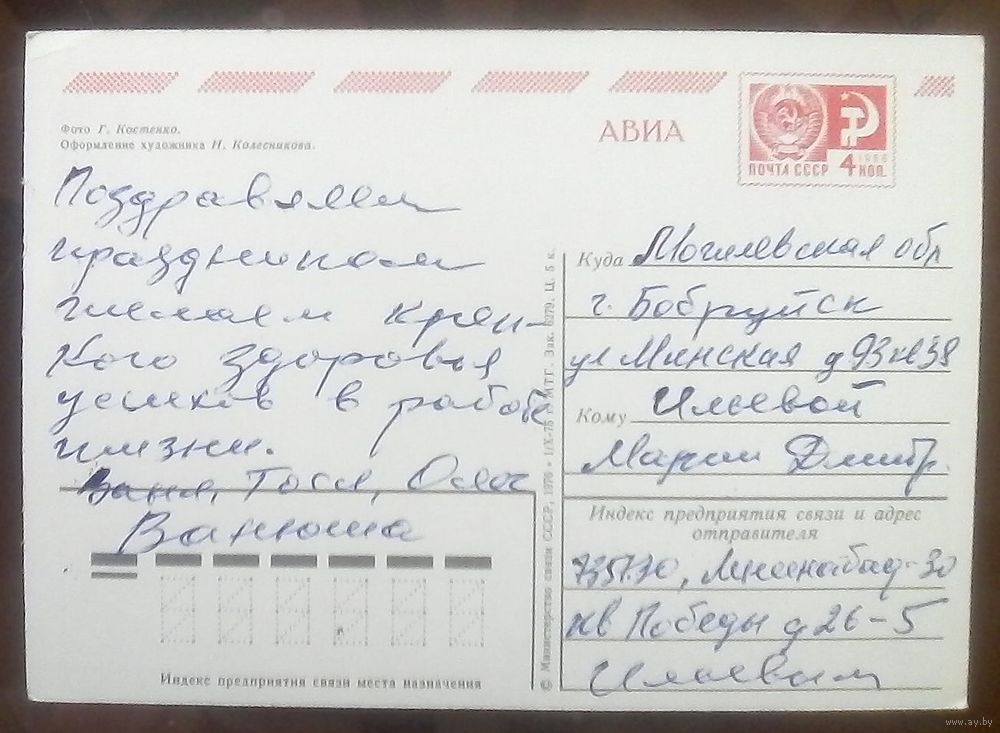 Фото Г. Костенко.
Оформление художника Н. Колесникова.
АВИА
ПОЧТА СССР
4 КОП.
1966
Поздравляем
праздником
желаем креп-
кого здоровья
успехов в работе
жизни.
Ваня, Тося, Олег
Ванюша
Куда Могилевская обл
г. Бобруйск
ул Минская д 93 кв 38
Кому Ильевой
Марии Дмитр.
Индекс предприятия связи и адрес
отправителя
735730, Ленинабад-30
кв Победы д 26-5
Индекс предприятия связи места назначения
© Министерство связи СССР, 1976 • 1/X-75 г. МТГ. Зак. 6279. Ц. 5 к.
www.ay.by